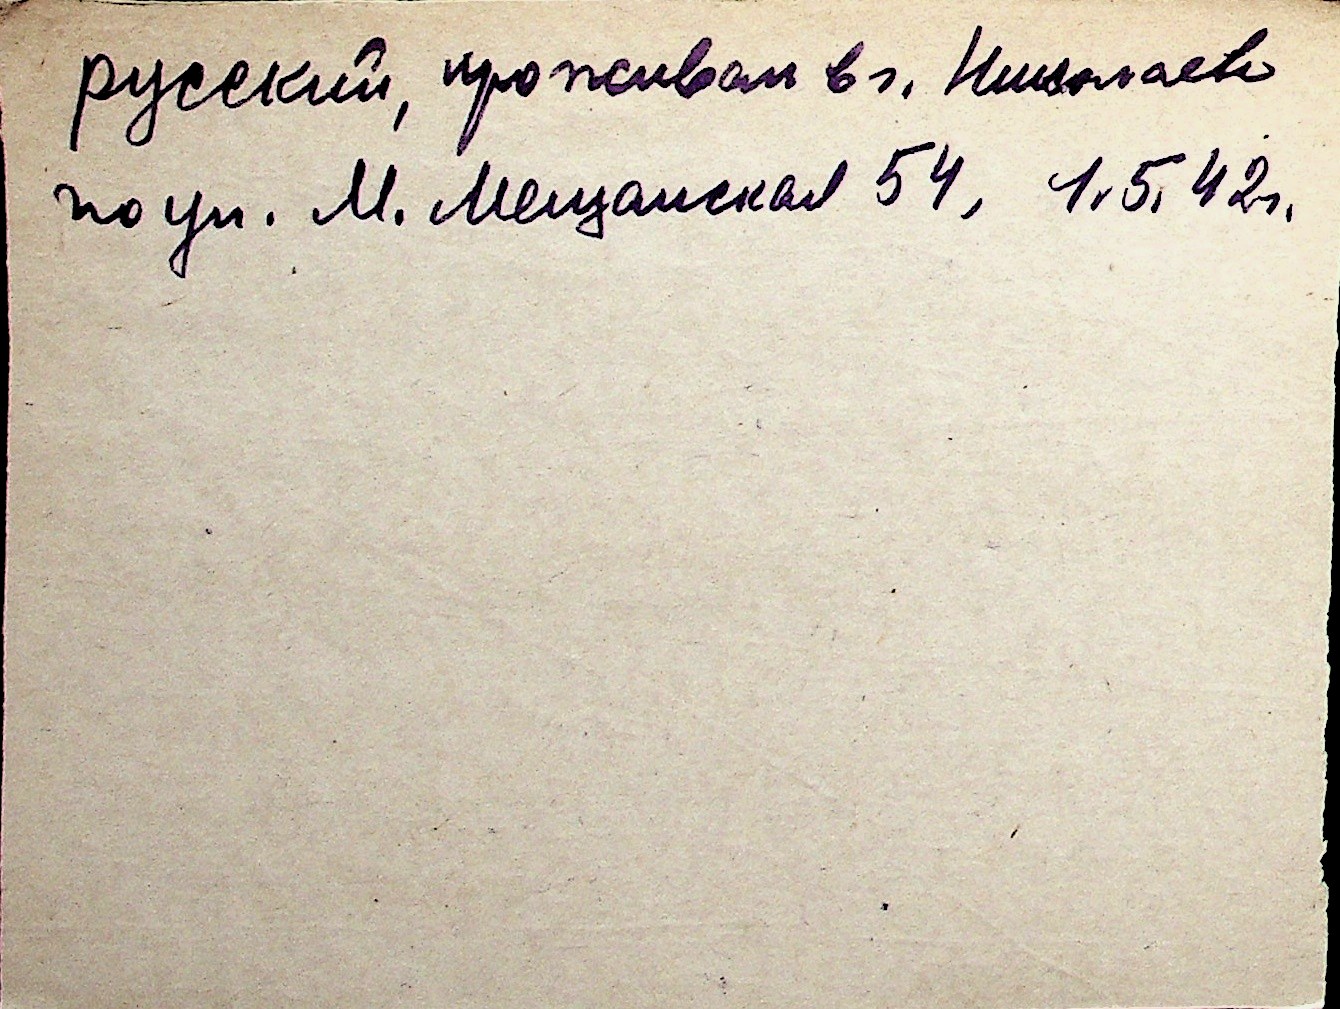 русский, проживал в г. Николаев
по ул. М. Мещанская 54, 1.5.42г.